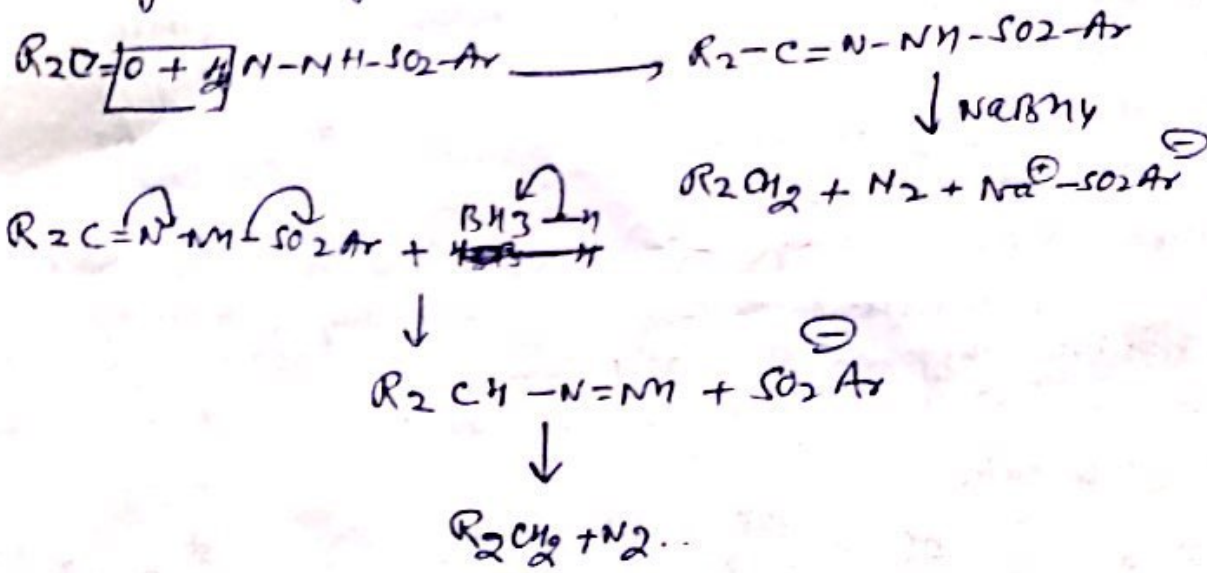 R2C=O + H2N-NH-SO2-Ar → R2-C=N-NH-SO2-Ar
↓ NaBH4
R2CH2 + N2 + Na⊕-SO2Ar⊖
R2C=N-NH-SO2Ar + BH3-H
↓
R2CH-N=NH + SO2Ar⊖
↓
R2CH2+N2..